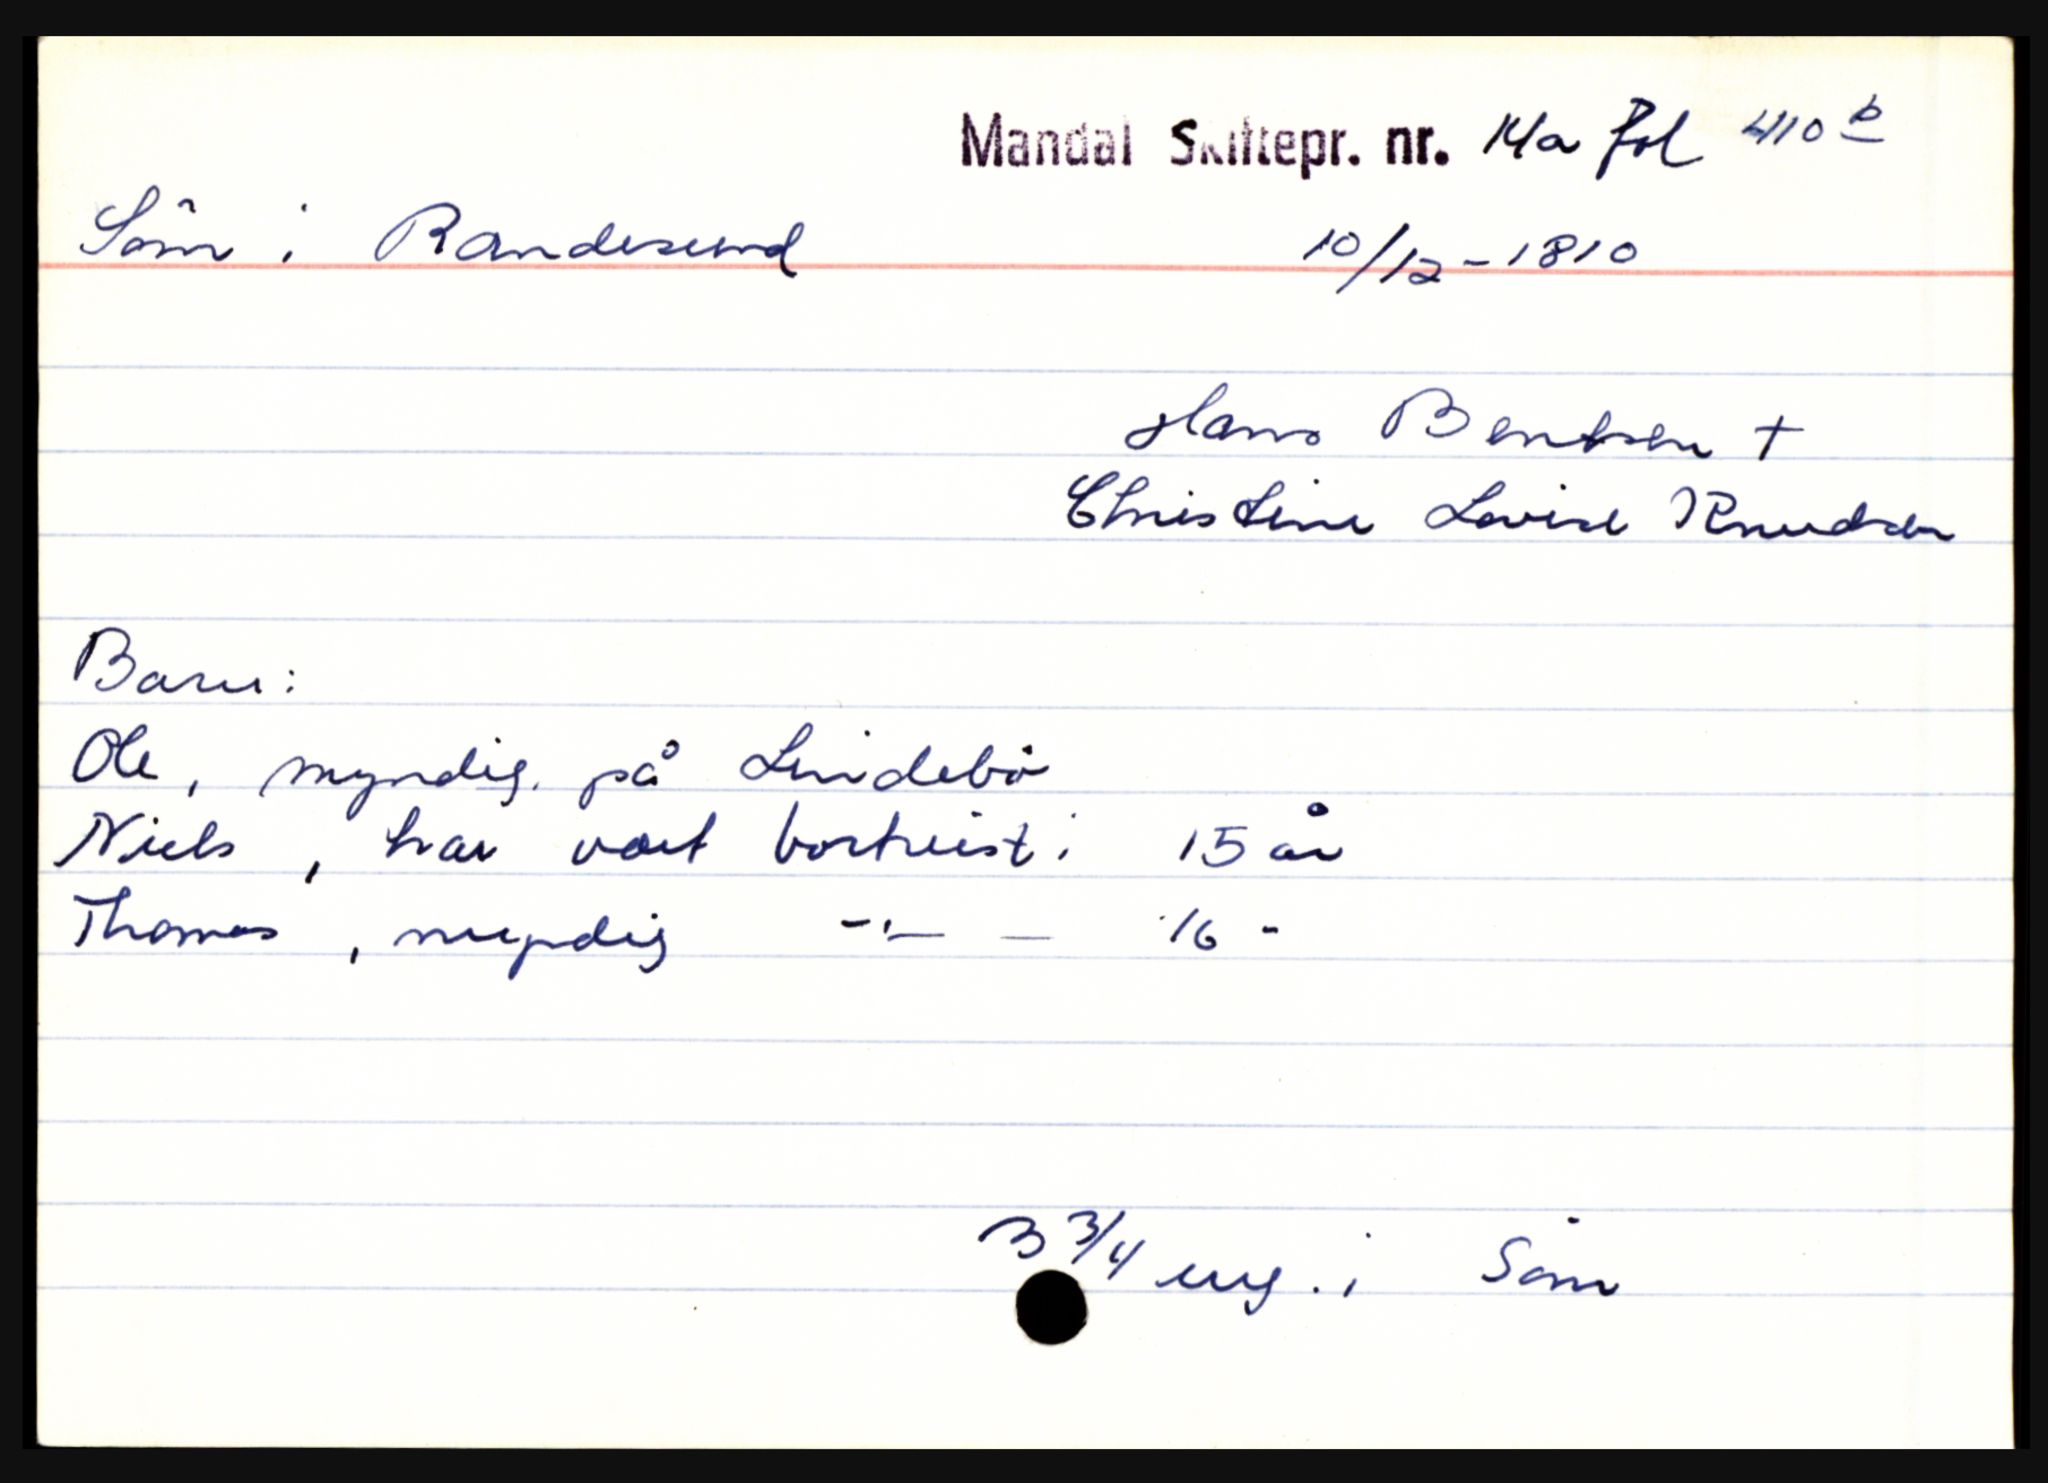 Mandal Skiftepr. nr. 14a fol 410 b
Söm i Randesund 10/12 - 1810
Hans Bentsen +
Christine Lovise Knudsen
Barn:
Ole, myndig, på Lindebö
Niels, har vært bortreist i 15 år
Thomas, myndig -"- — 16 -
3 3/4 eng. i Söm